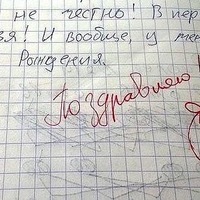 не честно! В пер
зя! И вообще, у мен
Рождения.
Поздравляю